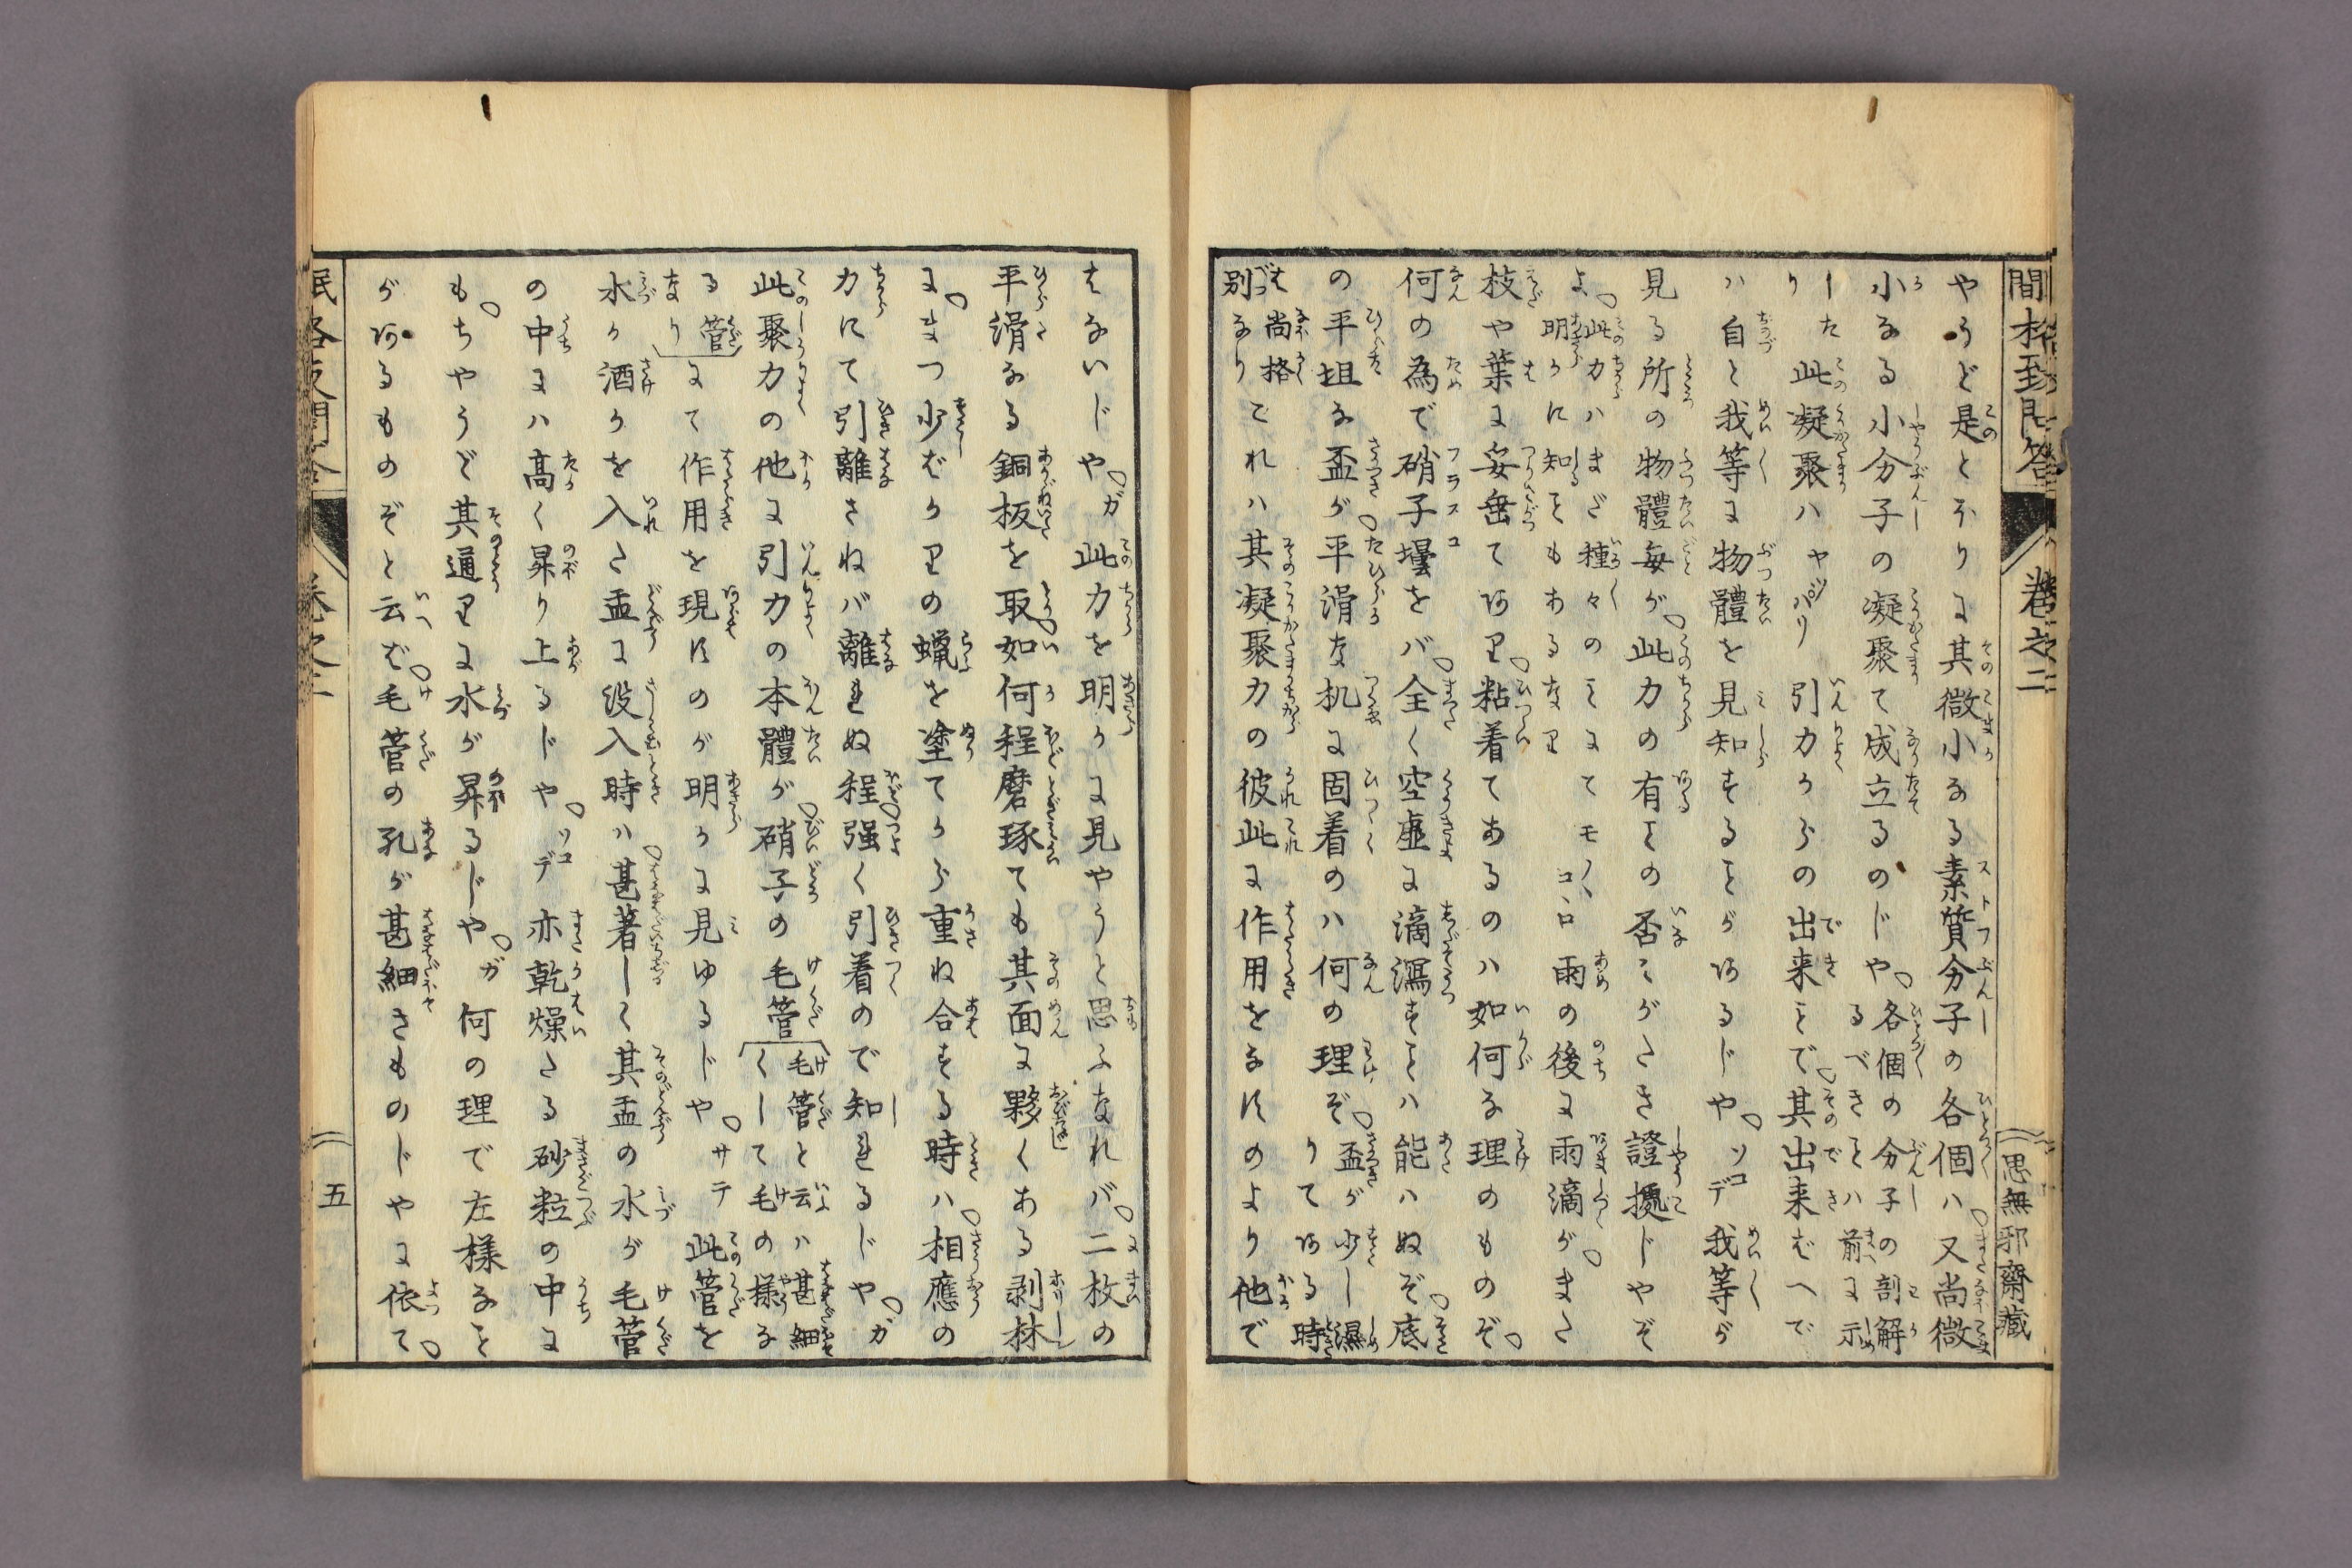 やうど是とおりに其微小なる素質分子の各個ハ又尚微
小なる小分子の凝聚て成立るのじや各個の分子の剖解
るべきことハ前に示
した此凝聚ハヤハリ引力からの出来ことで其出来ばへで
ハ自と我等に物體を見知することがあるじやソコデ我等が
見る所の物體毎が此力の有ことの否こがたき證據じやぞ
よ此力ハまだ種々のことにてモノヽコヽロ
明かに知こともあるなり
雨の後に雨滴がまた
枝や葉に妥垂てあり粘着てあるのハ如何な理のものぞ
何の為で硝子壜をバ全く空虚に滴瀉すことハ能ハぬぞ底
の平坦な盃が平滑な机に固着のハ何の理ぞ盃が少し濕
りてある時
ハ尚格
別なり
これハ其凝聚力の彼此に作用をなすのより他で
はないじやガ此力を明かに見やうと思ふなれバ二枚の
平滑なる銅板を取如何程磨琢ても其面に夥くある剥林
にまつ少ばかりの蝋を塗てから重ね合する時ハ相應の
力にて引離さねバ離れぬ程强く引着ので知れるじやガ
此聚力の他に引力の本體が硝子の毛管
毛管と云ハ甚細
くして毛の様な
る管
なり
にて作用を現すのが明かに見ゆるじやサテ此管を
水か酒かを入た盂に没入時ハ甚著しく其盂の水が毛管
の中にハ高く昇り上るじやソコデ亦乾燥たる砂粒の中に
もちやうど其通りに水が昇るじやガ何の理で左様なこと
があるものぞと云ば毛管の孔が甚細きものじやに依て
巻之二
思無邪齋藏
五